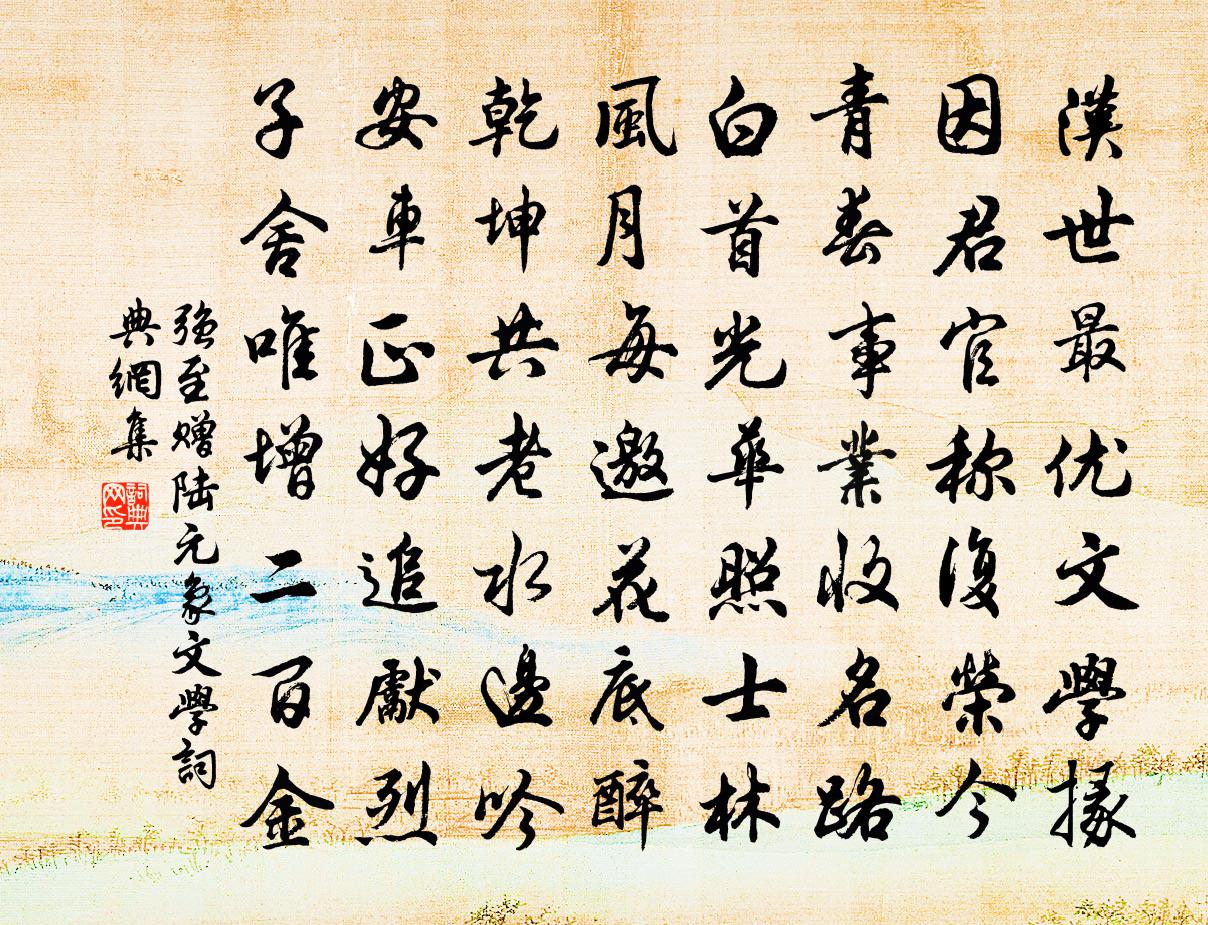 漢世最优文學掾
因君官称復榮今
青春事業收名路
白首光華照士林
風月每邀花底醉
乾坤共老水邊吟
安車正好追獻烈
子舍唯增二百金
强至赠陆元象文學詞
典網集
詞典
网印